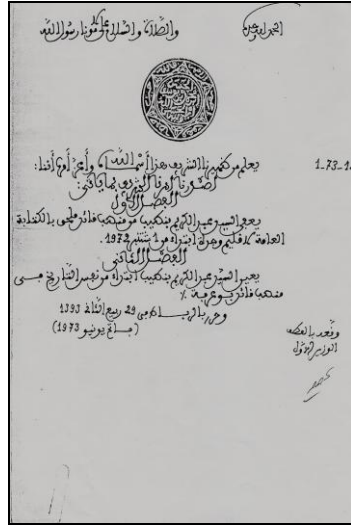 الحمد لله وحده
والصلاة والسلام على مولانا رسول الله
1-73-1
يعلم من ظهيرنا الشريف هذا أسماه الله وأعز أمره أننا:
أصدرنا أمرنا الشريف بما يأتي:
الفصل الأول
يعفى السيد عبد الكريم بنهيب من منصب قائد ملحق بالكتابة
العامة لإقليم وجدة ابتداء من 1 شتنبر 1972.
الفصل الثاني
يعين السيد عبد الكريم بنهيب ابتداء من نفس التاريخ في
منصب قائد بوعرفة
وحرر بالرباط في 29 ربيع الثاني 1393
(يونيو 1973)
وقعه بالعطف
الوزير الأول